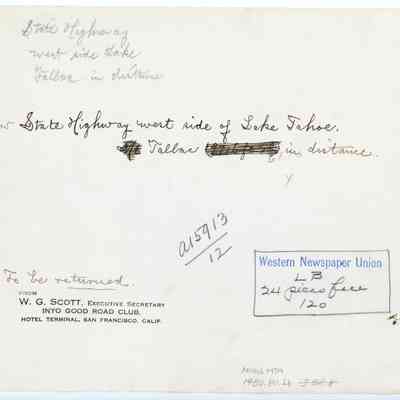 State Highway
west side Lake
Tallac in distance
State Highway west side of Lake Tahoe.
Tallac in distance.
a15913
12
Western Newspaper Union
LB
24 picas face
120
To be returned.
FROM
W. G. SCOTT, EXECUTIVE SECRETARY
INYO GOOD ROAD CLUB.
HOTEL TERMINAL, SAN FRANCISCO, CALIF.